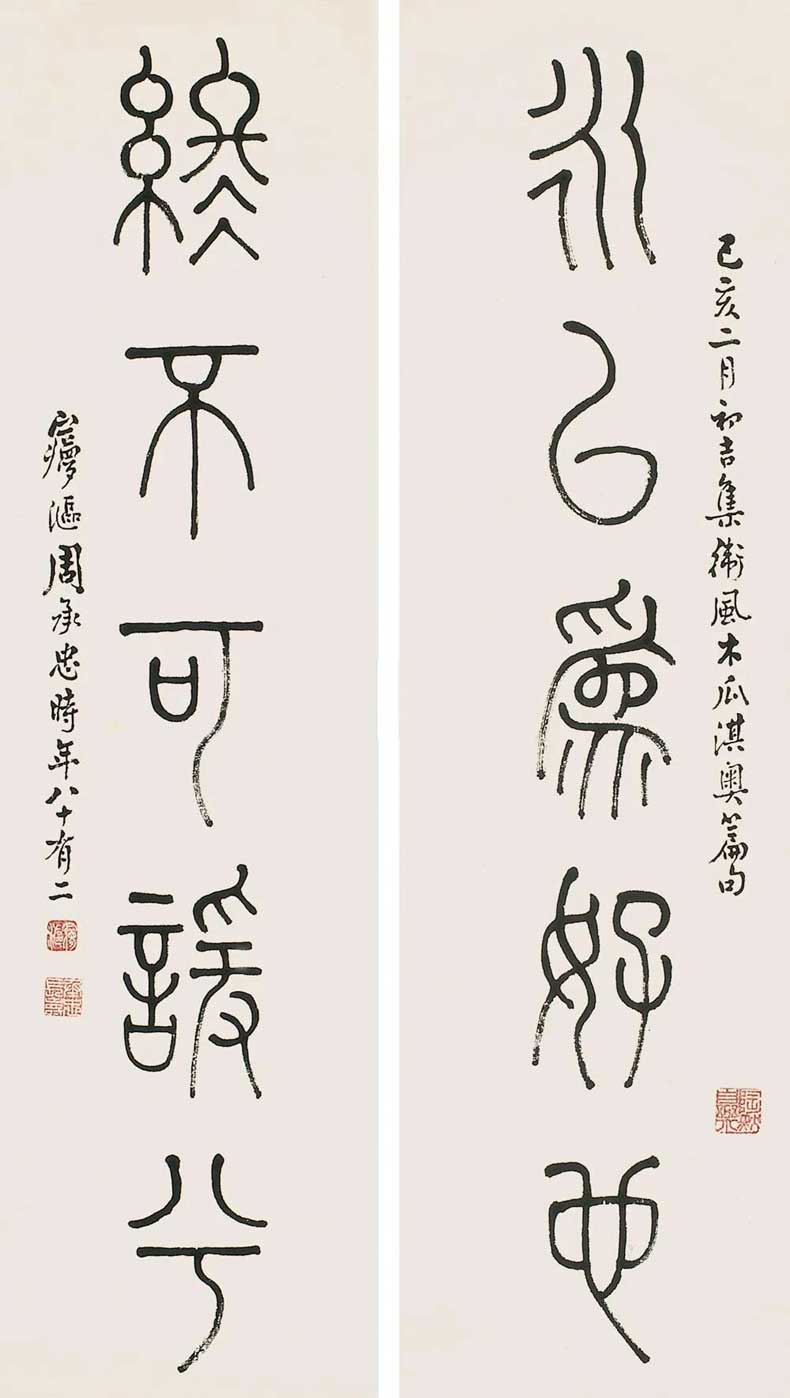 己亥二月初吉集衛風木瓜淇奧篇句
永㠯爲好也
終不可諼兮
漚周承忠時年八十有二